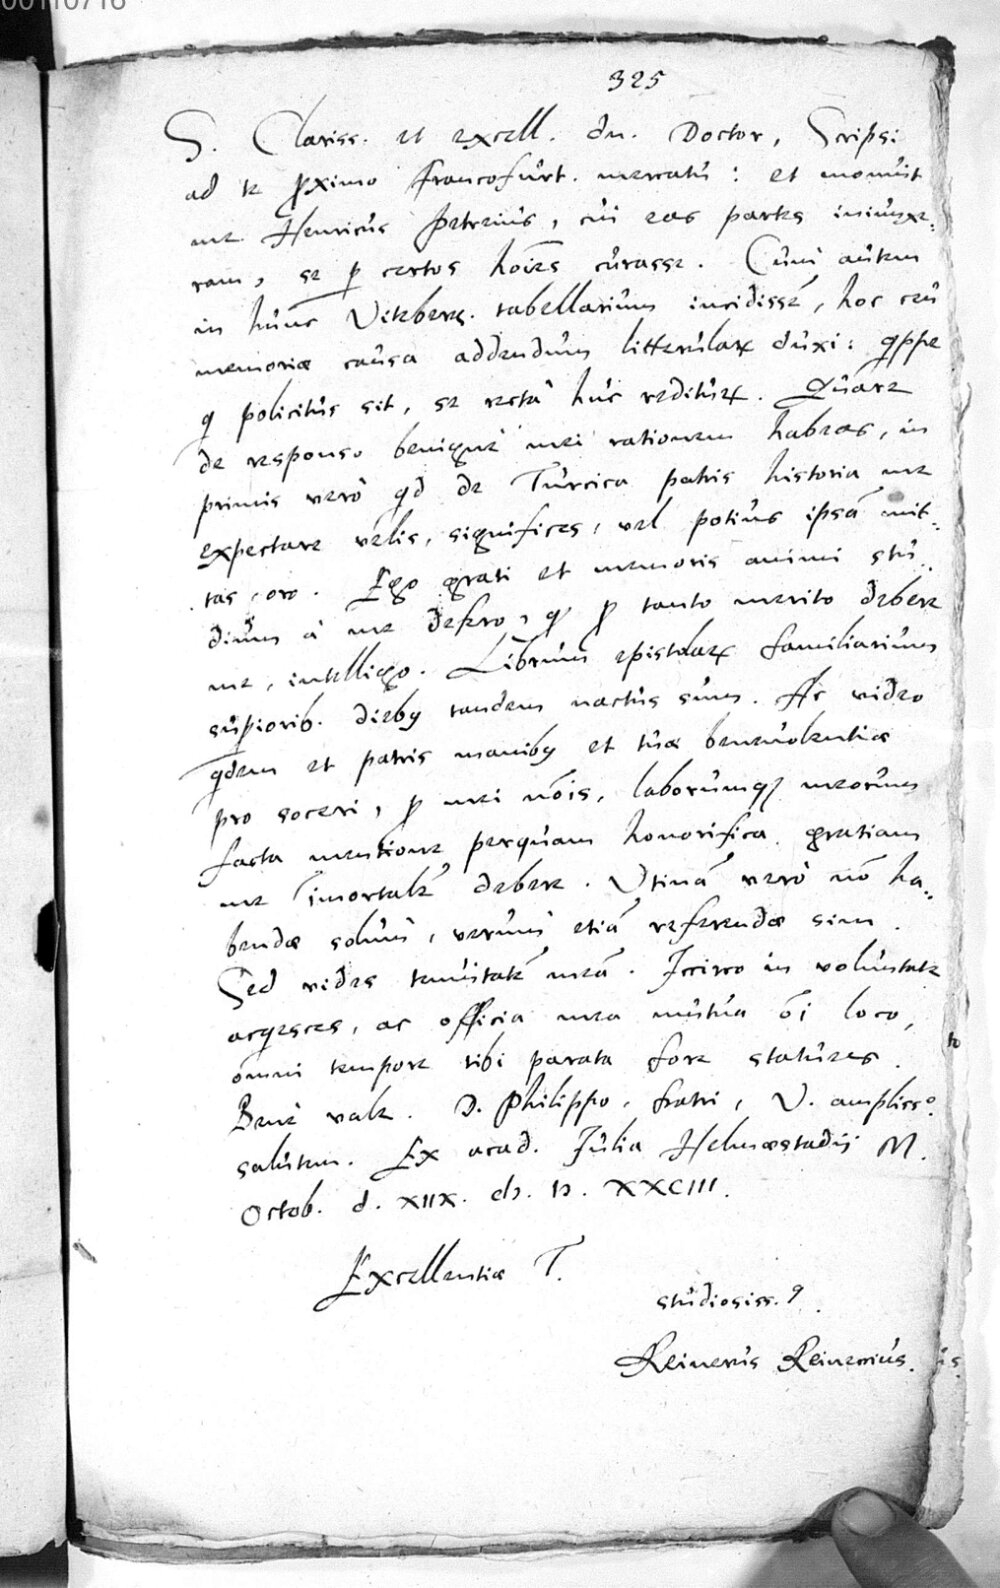 00110716
325
S. Clariss. et excell. dn. Doctor, Scripsi
ad te ꝓximo Francofurt. mercatu : et monuit
me Henricus Petreius, cui eas partes iniunxe:
ram, se ꝑ certos hoī̄es curasse. Cum autem
in hunc Viteberg. tabellarium incidissē, hoc ceu
memoriæ causa addendum litterulaꝝ duxi: qppe
q policitus sit, se rectà huc redituꝝ. Quare
de responso benignè mei rationem habeas, in
primis verò qd de Turcica patris historia me
expectare velis, significes, vel potius ipsā mit:
tas, oro. Ego grati et memoris animi stu:
dium à me defero, qd ꝓ tanto merito debere
me, intelligo. Librum epistolaꝝ familiarium
supiorib. dieby tandem nactus sum. Ac video
qdem et patris maniby et tuæ benevolentiæ
pro soceri, ꝓ mei nōis, laborumqꝫ meorum
facta mentione perquam honorifica gratiam
me imortalē debere. Utinā verò nō ha:
bendæ solum, verum etiā referendæ sim.
Sed vides tenuitatē meā. Iccirco in voluntate
acqesces, ac officia mea mutua ōi loco,
omni tempore tibi parata fore statues.
Benè vale. D. Philippo, fratri, V. ampliss.º
salutem. Ex acad. Iulia Helmæstadij M.
Octob. d. XIIX. cIɔ. Iɔ. XXCIII.
Excellentiæ T.
studiosiss. 9
Reinerus Reineccius.
to
is